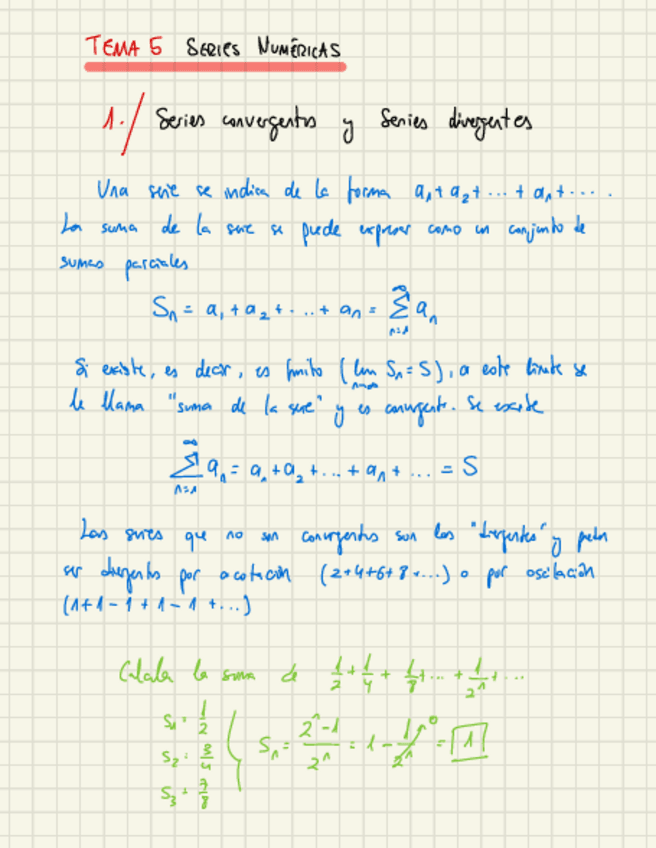 TEMA 5 SERIES NUMÉRICAS
1./ Series convergentes y Series divergentes
Una serie se indica de la forma a₁+a₂+...+aₙ+....
La suma de la serie se puede expresar como un conjunto de
sumas parciales
Sₙ = a₁+a₂+...+aₙ = ∑ₙ₌₁^∞ aₙ
Si existe, es decir, es finito (lim Sₙ=S), a este límite se
n→∞
le llama "suma de la serie" y es convergente. Se escribe
∑ₙ₌₁^∞ aₙ = a₁+a₂+...+aₙ+... = S
Las series que no son convergentes son las "divergentes" y pueden
ser divergentes por acotación (2+4+6+8+...) o por oscilación
(1+1-1+1-1+...)
Calcula la suma de 1/2+1/4+1/8+...+1/2ⁿ+...
S₁=1/2
S₂=3/4
S₃=7/8
Sₙ = (2ⁿ-1)/2ⁿ = 1-1/2ⁿ↗⁰ = 1